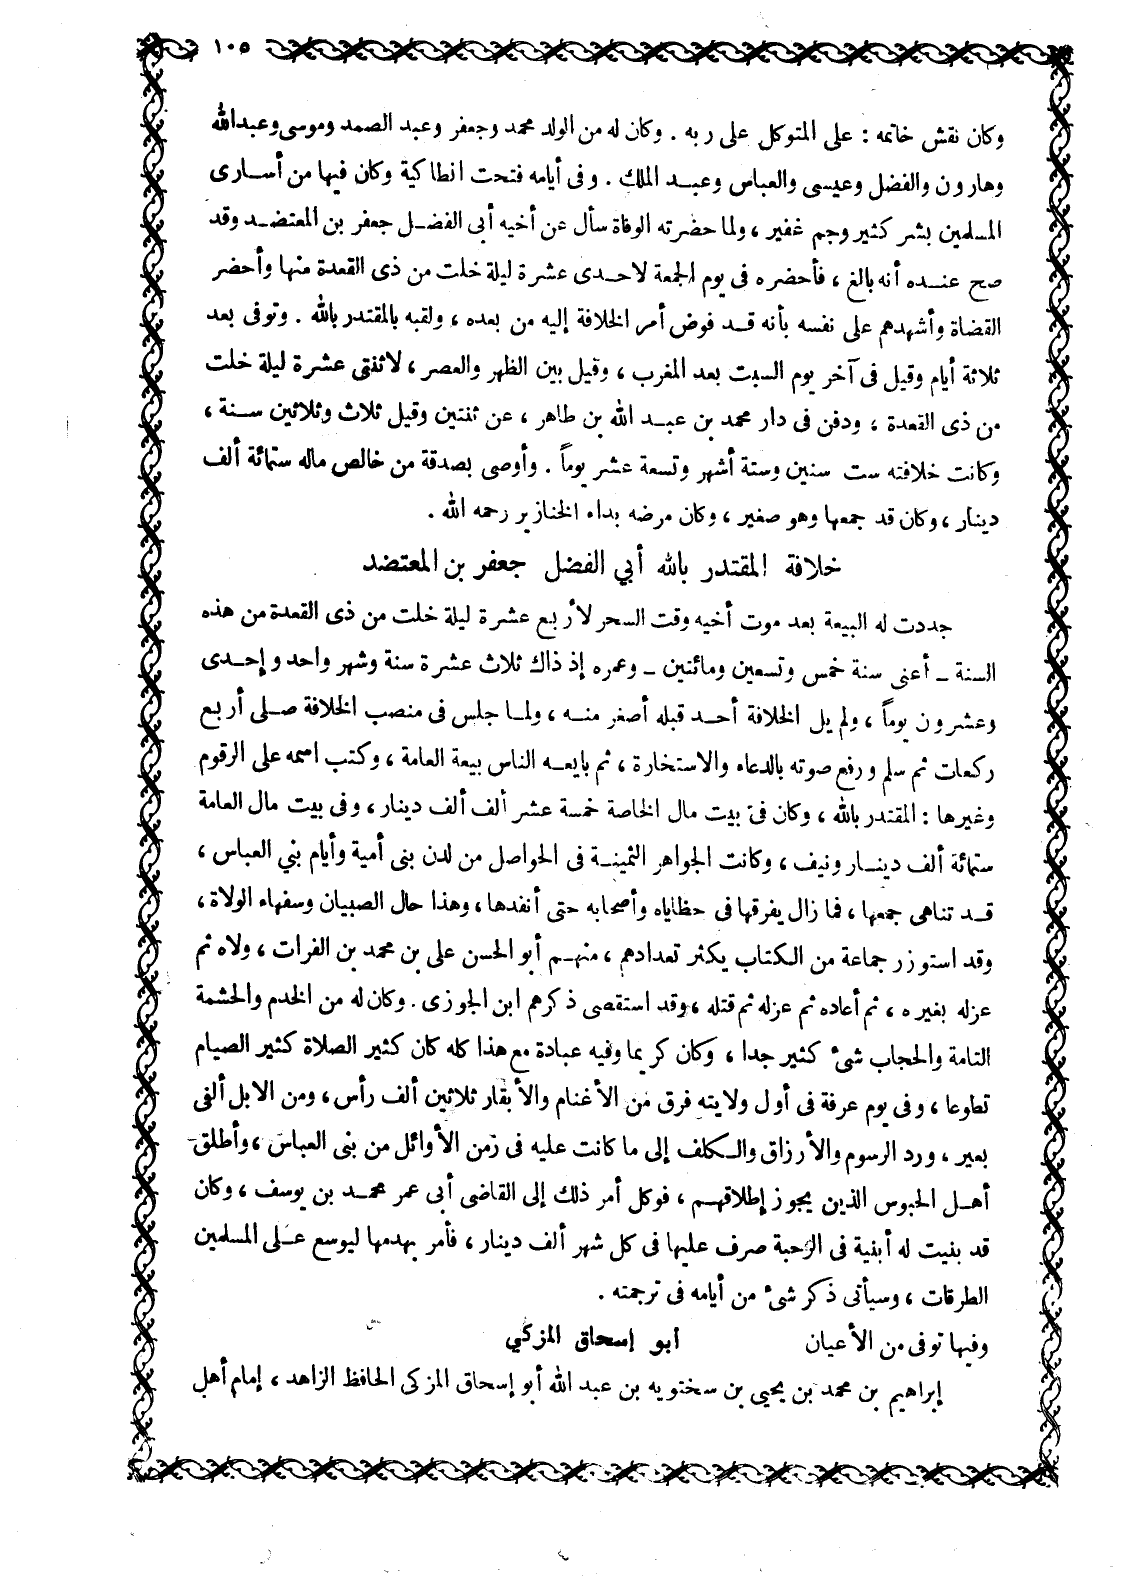 ١٠٥
وكان نقش خاتمه : على المتوكل على ربه . وكان له من الولد محمد وجعفر وعبد الصمد وموسى وعبدالله
وهارون والفضل وعيسى والعباس وعبد الملك . وفى أيامه فتحت انطاكية وكان فيها من أسارى
المسلمين بشر كثير وجم غفير ، ولما حضرته الوفاة سأل عن أخيه أبى الفضل جعفر بن المعتضد وقد
صح عنده أنه بالغ ، فأحضره فى يوم الجمعة لاحدى عشرة ليلة خلت من ذى القعدة منها وأحضر
القضاة وأشهدهم على نفسه بأنه قد فوض أمر الخلافة إليه من بعده ، ولقبه بالمقتدر بالله . وتوفى بعد
ثلاثة أيام وقيل فى آخر يوم السبت بعد المغرب ، وقيل بين الظهر والعصر ، لاثنتى عشرة ليلة خلت
من ذى القعدة ، ودفن فى دار محمد بن عبد الله بن طاهر ، عن ثنتين وقيل ثلاث وثلاثين سنة ،
وكانت خلافته ست سنين وستة أشهر وتسعة عشر يوماً . وأوصى بصدقة من خالص ماله ستمائة ألف
دينار ، وكان قد جمعها وهو صغير ، وكان مرضه بداء الخنازير رحمه الله .
خلافة المقتدر بالله أبي الفضل جعفر بن المعتضد
جددت له البيعة بعد موت أخيه وقت السحر لأربع عشرة ليلة خلت من ذى القعدة من هذه
السنة ـ أعنى سنة خمس وتسعين ومائتين ـ وعمره إذ ذاك ثلاث عشرة سنة وشهر واحد وإحدى
وعشرون يوماً ، ولم يل الخلافة أحد قبله أصغر منه ، ولما جلس فى منصب الخلافة صلى أربع
ركعات ثم سلم ورفع صوته بالدعاء والاستخارة ، ثم بايعه الناس بيعة العامة ، وكتب اسمه على الرقوم
وغيرها : المقتدر بالله ، وكان فى بيت مال الخاصة خمسة عشر ألف ألف دينار ، وفى بيت مال العامة
ستمائة ألف دينار ونيف ، وكانت الجواهر الثمينة فى الحواصل من لدن بنى أمية وأيام بني العباس ،
قد تناهى جمعها ، فما زال يفرقها فى حظاياه وأصحابه حتى أنفدها ، وهذا حال الصبيان وسفهاء الولاة ،
وقد استوزر جماعة من الكتاب يكثر تعدادهم ، منهم أبو الحسن على بن محمد بن الفرات ، ولاه ثم
عزله بغيره ، ثم أعاده ثم عزله ثم قتله ، وقد استقصى ذكرهم ابن الجوزى . وكان له من الخدم والحشمة
التامة والحجاب شىء كثير جدا ، وكان كريما وفيه عبادة مع هذا كله كان كثير الصلاة كثير الصيام
تطوعا ، وفى يوم عرفة فى أول ولايته فرق من الأغنام والأبقار ثلاثين ألف رأس ، ومن الابل ألفى
بعير ، ورد الرسوم والأرزاق والكلف إلى ما كانت عليه فى زمن الأوائل من بنى العباس ، وأطلق
أهل الحبوس الذين يجوز إطلاقهم ، فوكل أمر ذلك إلى القاضى أبى عمر محمد بن يوسف ، وكان
قد بنيت له أبنية فى الرحبة صرف عليها فى كل شهر ألف دينار ، فأمر بهدمها ليوسع على المسلمين
الطرقات ، وسيأتى ذكر شىء من أيامه فى ترجمته .
وفيها توفى من الأعيان أبو إسحاق المزكي
إبراهيم بن محمد بن يحيى بن سختويه بن عبد الله أبو إسحاق المزكى الحافظ الزاهد ، إمام أهل